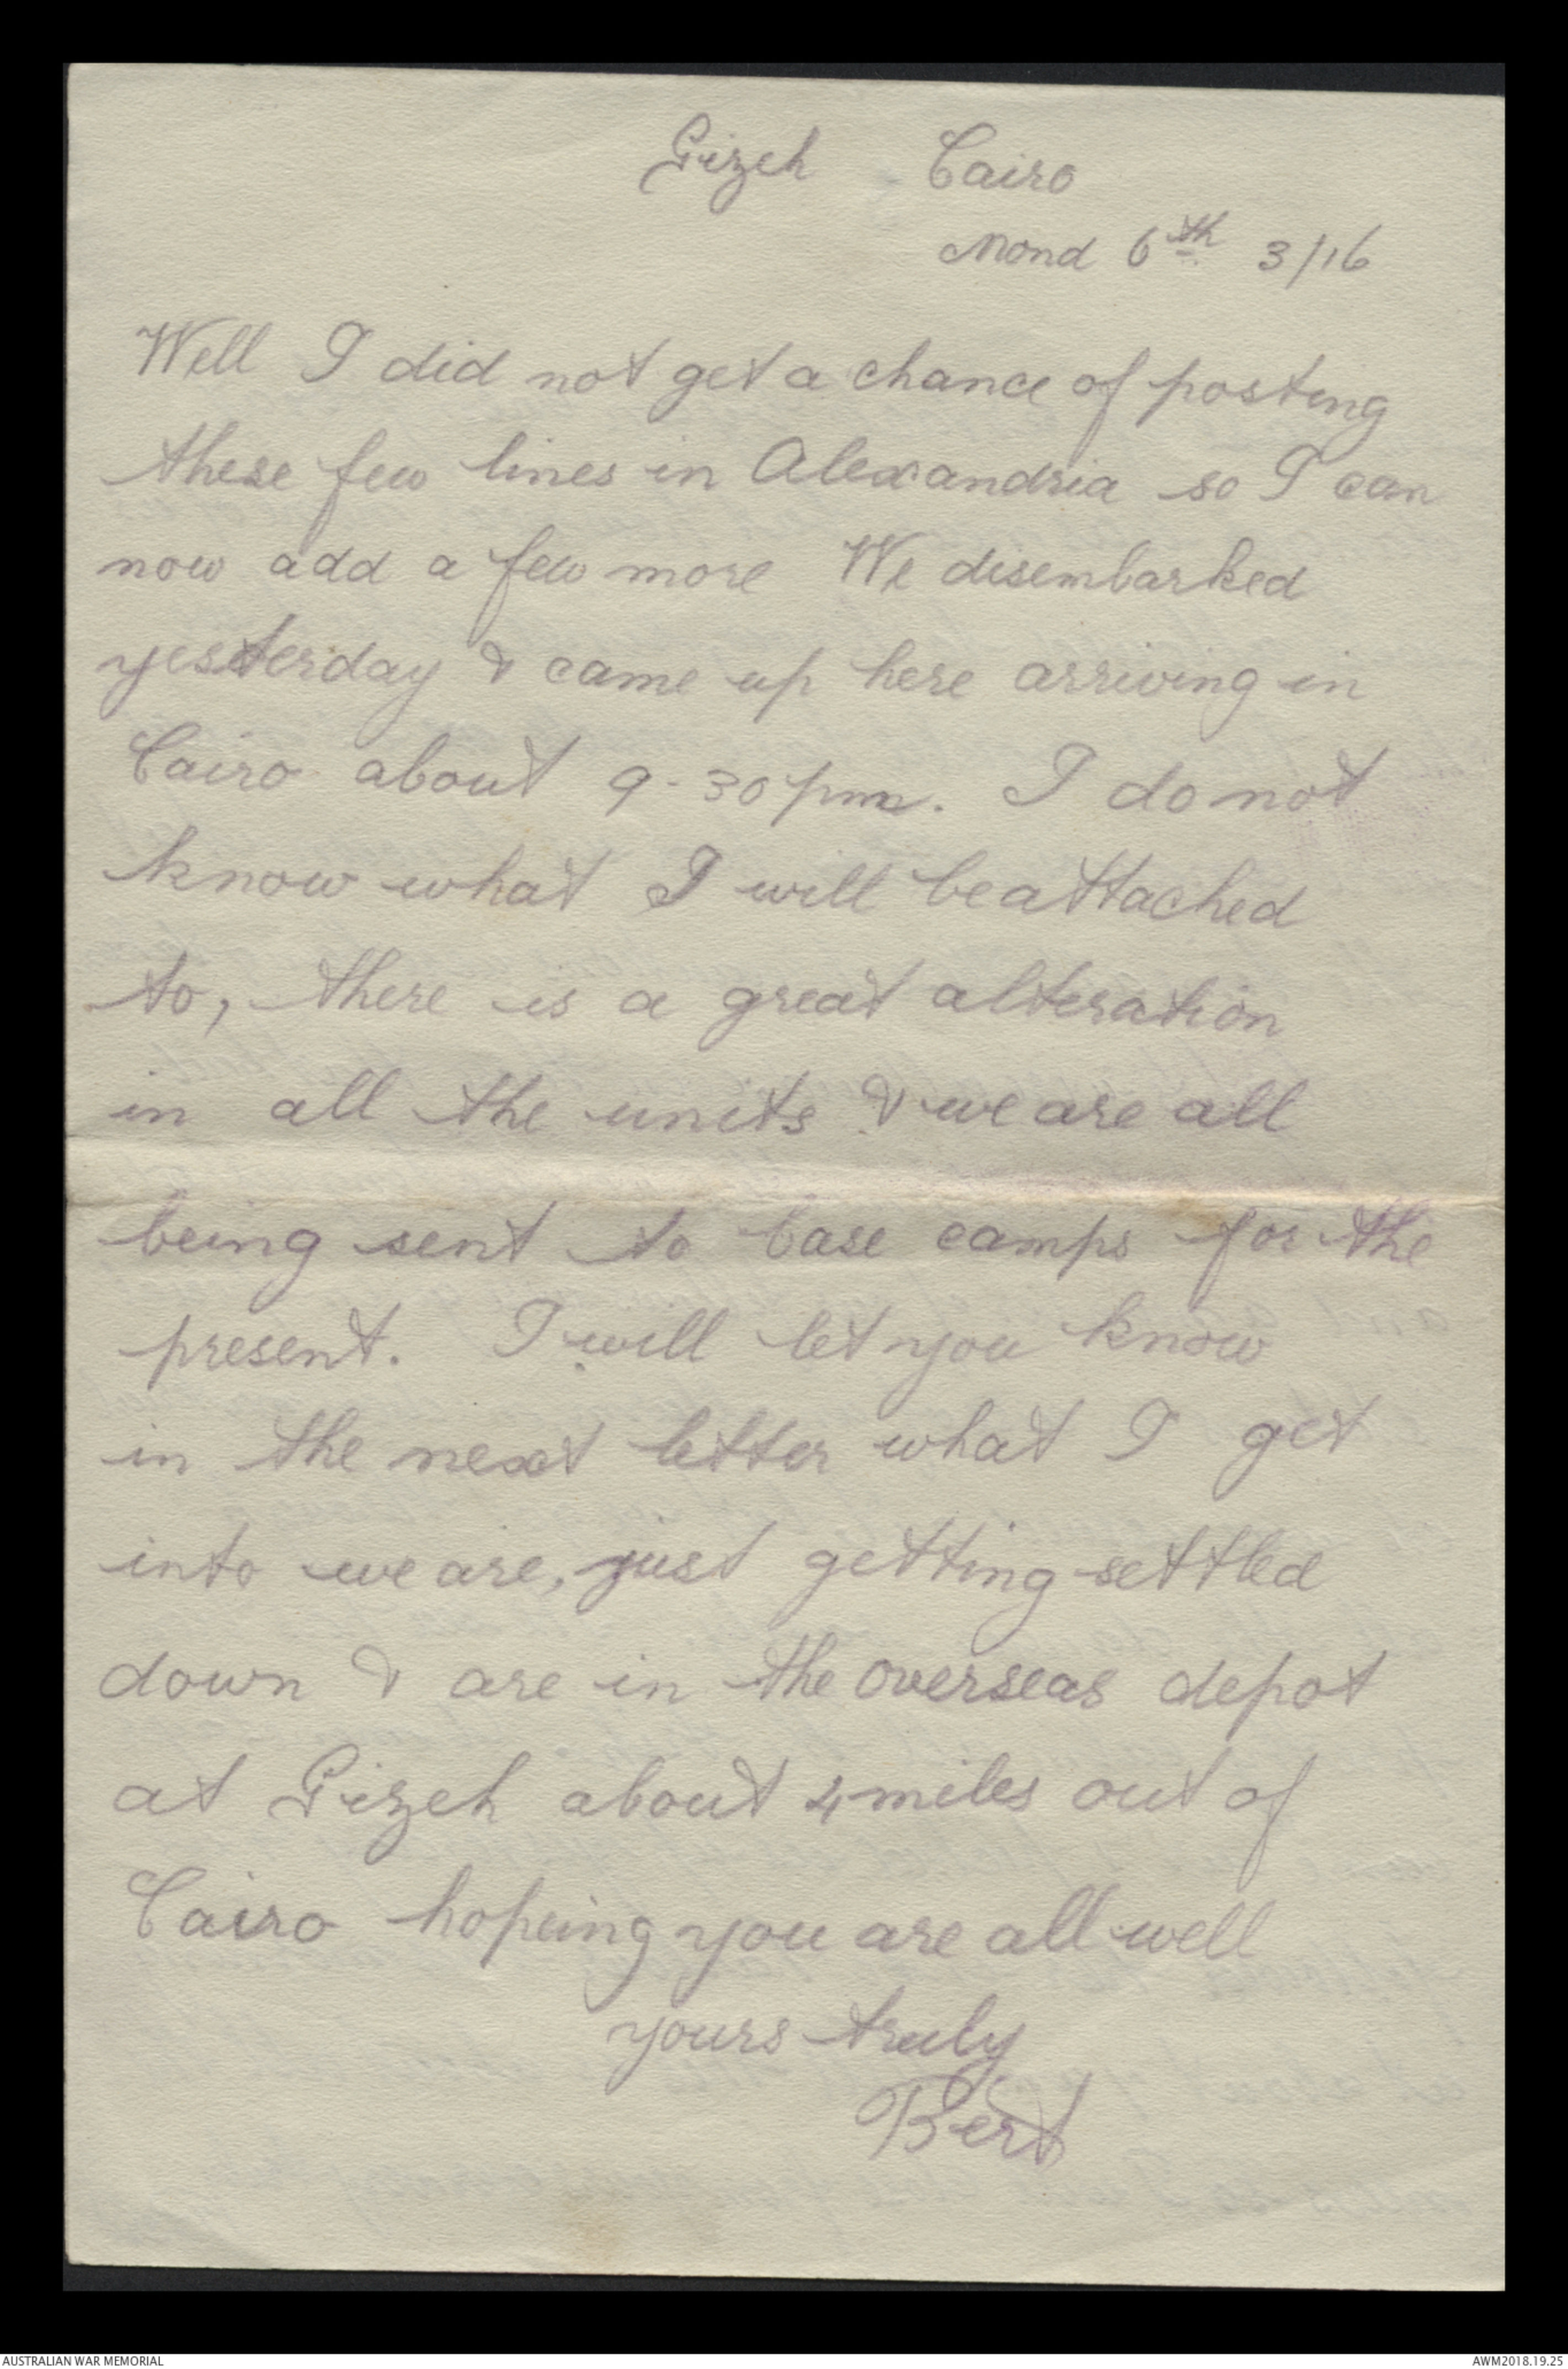 Gizeh Cairo
Mond 6th 3/16
Well I did not get a chance of posting
these few lines in Alexandria so I can
now add a few more We disembarked
yesterday & came up here arriving in
Cairo about 9-30 pm. I do not
know what I will be attached
to, there is a great alteration
in all the units & we are all
being sent to base camps for the
present. I will let you know
in the next letter what I get
into we are, just getting settled
down & are in the overseas depot
at Gizeh about 4 miles out of
Cairo hopeing you are all well
yours truly
Bert
AUSTRALIAN WAR MEMORIAL
AWM2018.19.25